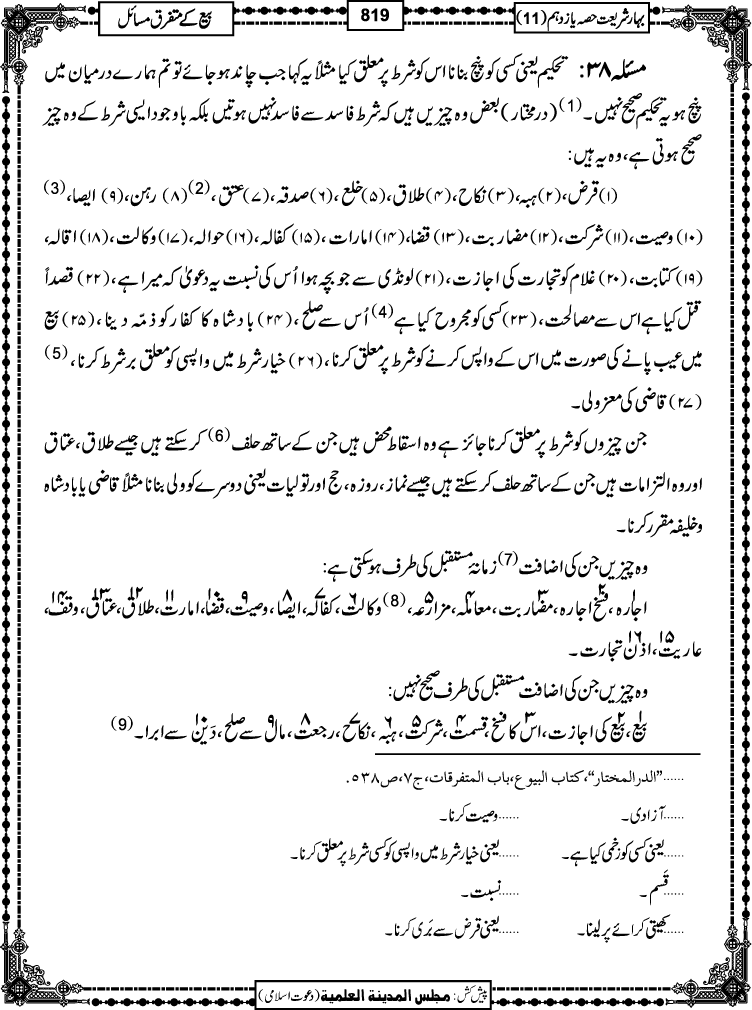 بہارِشریعت حصہ یازدہم (11)
819
بیع کے متفرق مسائل
مسئلہ ۳۸: تحکیم یعنی کسی کو پنچ بنانا اس کو شرط پر معلق کیا مثلاً یہ کہا جب چاند ہو جائے تو تم ہمارے درمیان میں
پنچ ہو یہ تحکیم صحیح نہیں۔(1) (درمختار) بعض وہ چیزیں ہیں کہ شرط فاسد سے فاسد نہیں ہوتیں بلکہ باوجود ایسی شرط کے وہ چیز
صحیح ہوتی ہے، وہ یہ ہیں:
(۱) قرض، (۲) ہبہ، (۳) نکاح، (۴) طلاق، (۵) خلع، (۶) صدقہ، (۷) عتق، (2) (۸) رہن، (۹) ایصا، (3)
(۱۰) وصیت، (۱۱) شرکت، (۱۲) مضاربت، (۱۳) قضا، (۱۴) امارات، (۱۵) کفالہ، (۱۶) حوالہ، (۱۷) وکالت، (۱۸) اقالہ،
(۱۹) کتابت، (۲۰) غلام کو تجارت کی اجازت، (۲۱) لونڈی سے جو بچہ ہوا اُس کی نسبت یہ دعویٰ کہ میرا ہے، (۲۲) قصداً
قتل کیا ہے اس سے مصالحت، (۲۳) کسی کو مجروح کیا ہے(4) اُس سے صلح، (۲۴) بادشاہ کا کفار کو ذمّہ دینا، (۲۵) بیع
میں عیب پانے کی صورت میں اس کے واپس کرنے کو شرط پر معلق کرنا، (۲۶) خیار شرط میں واپسی کو معلق بر شرط کرنا، (5)
(۲۷) قاضی کی معزولی۔
جن چیزوں کو شرط پر معلق کرنا جائز ہے وہ اسقاط محض ہیں جن کے ساتھ حلف(6) کرسکتے ہیں جیسے طلاق، عتاق
اور وہ التزامات ہیں جن کے ساتھ حلف کرسکتے ہیں جیسے نماز، روزہ، حج اور تولیات یعنی دوسرے کو ولی بنانا مثلاً قاضی یا بادشاہ
و خلیفہ مقرر کرنا۔
وہ چیزیں جن کی اضافت(7) زمانہ مستقبل کی طرف ہوسکتی ہے:
۱اجارہ، ۲فسخ اجارہ، ۳مضاربت، ۴معاملہ، ۵مزارعہ، (8) ۶وکالت، ۷کفالہ، ۸ایصا، ۹وصیت، ۱۰قضا، ۱۱امارت، ۱۲طلاق، ۱۳عتاق، ۱۴وقف،
۱۵عاریت، ۱۶اذن تجارت۔
وہ چیزیں جن کی اضافت مستقبل کی طرف صحیح نہیں:
۱بیع، ۲بیع کی اجازت، ۳اس کا فسخ، ۴قسمت، ۵شرکت، ۶ہبہ، ۷نکاح، ۸رجعت، ۹مال سے صلح، ۱۰دَین سے ابرا۔(9)
......"الدرالمختار"، کتاب البیوع، باب المتفرقات، ج۷، ص۵۳۸.
......آزادی۔ ......وصیت کرنا۔
......یعنی کسی کو زخمی کیا ہے۔ ......یعنی خیار شرط میں واپسی کو کسی شرط پر معلق کرنا۔
......قَسم۔ ......نسبت۔
......کھیتی کرائے پر لینا۔ ......یعنی قرض سے بَری کرنا۔
پیش کش: مجلس المدينة العلمية (دعوت اسلامی)